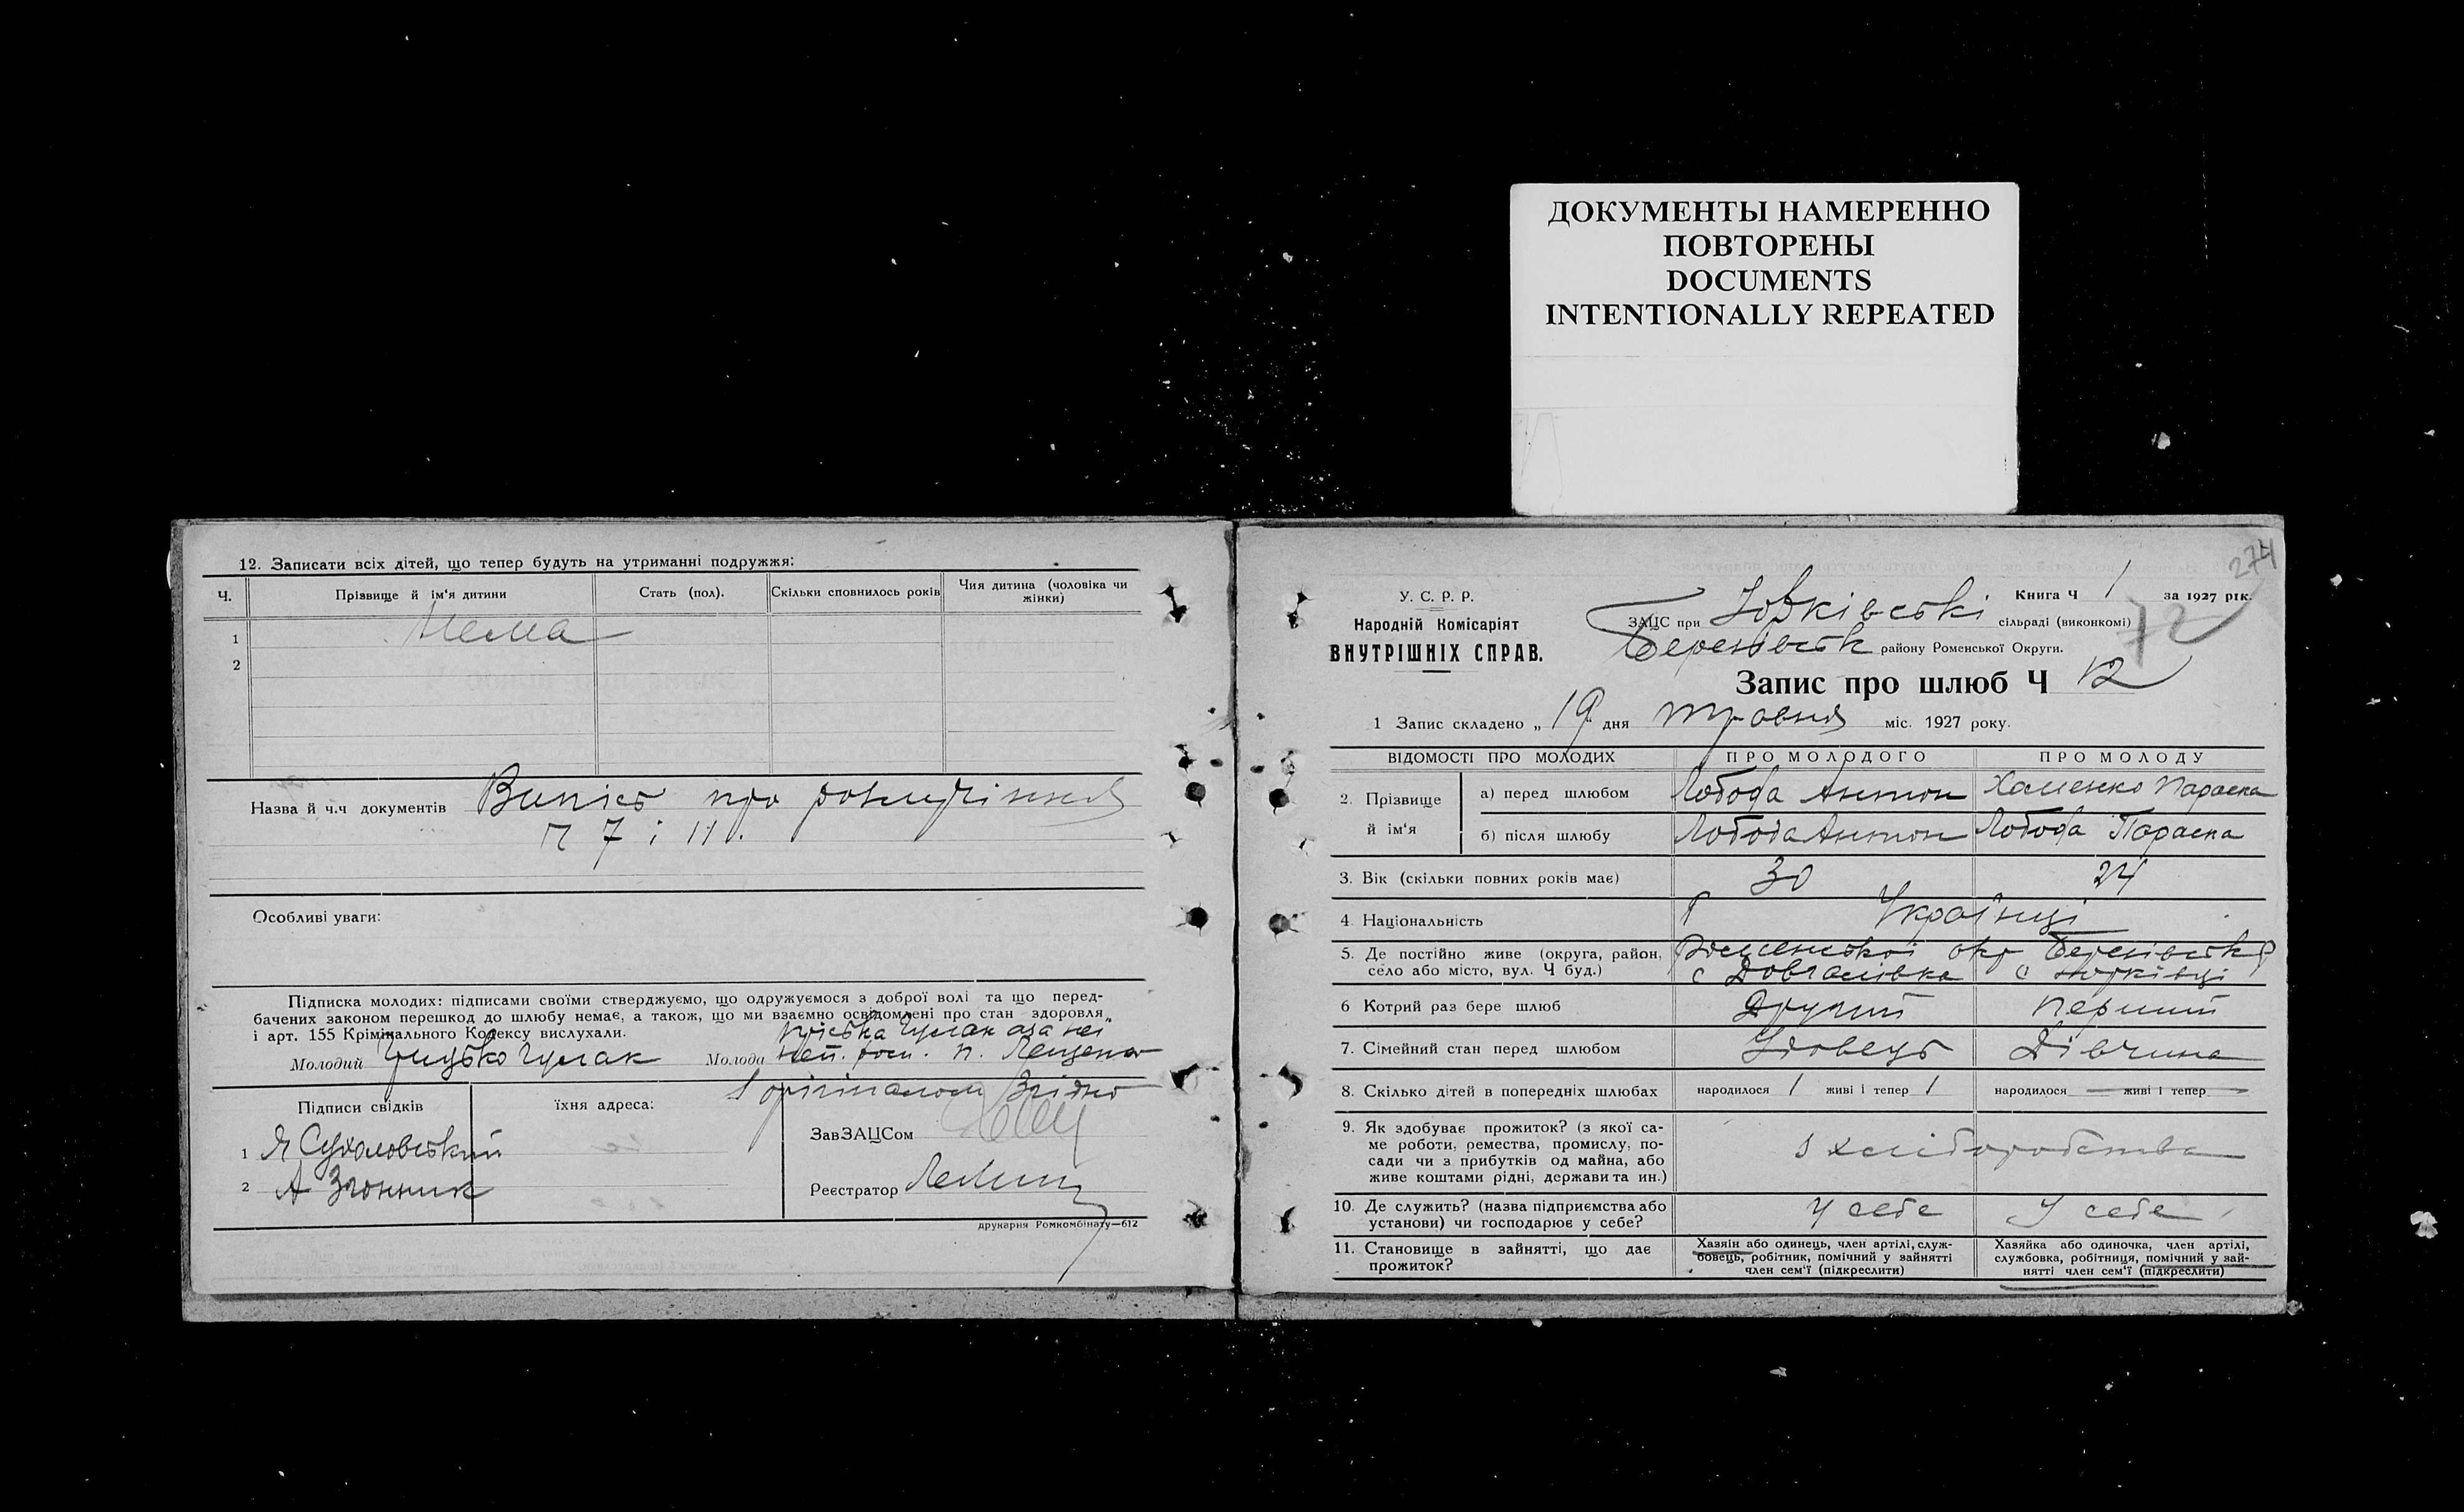 ДОКУМЕНТЫ НАМЕРЕННО
ПОВТОРЕНЫ
DOCUMENTS
INTENTIONALLY REPEATED
12. Записати всіх дітей, що тепер будуть на утриманні подружжя:
Ч. Прізвище й ім'я дитини Стать (пол). Скільки сповнилось років Чия дитина (чоловіка чи жінки)
1 Нема
2
Назва й ч.ч документів Випіс про
7 і 11.
Особливі уваги:
Підписка молодих: підписами своїми стверджуємо, що одружуємося з доброї волі та що перед-
бачених законом перешкод до шлюбу немає, а також, що ми взаємно освідомлені про стан здоровля
і арт. 155 Крімінального Кодексу вислухали. Пріська Гулак а за неї
Молодий Грицько Гулак Молода неп. росп. П. Лещенко
З орігіналом Згідно
Підписи свідків їхня адреса:
ЗавЗАЦСом
1 Я Сухоловський
2 А Згонник
Реєстратор
друкарня Ромкомбінату—612
274
У. С. Р. Р.
Народній Комісаріят
ВНУТРІШНІХ СПРАВ.
Книга Ч 1 за 1927 рік.
ЗАЦС при Юрківські сільраді (виконкомі)
72
Березівськ району Роменської Округи.
Запис про шлюб Ч 12
1 Запис складено „ 19 " дня травня міс. 1927 року.
ВІДОМОСТІ ПРО МОЛОДИХ ПРО МОЛОДОГО ПРО МОЛОДУ
2. Прізвище й ім'я а) перед шлюбом Лобода Антон Хоменко Параска
б) після шлюбу Лобода Антон Лобода Параска
3. Вік (скільки повних років має) 30 24
4. Національність Українці
5. Де постійно живе (округа, район, Роменської окр Березівськ р
село або місто, вул. Ч буд.) с Довгалівка с Юрківці
6 Котрий раз бере шлюб Другий Перший
7. Сімейний стан перед шлюбом Удовець Дівчина
8. Скілько дітей в попередніх шлюбах народилося 1 живі і тепер 1 народилося — живі і тепер —
9. Як здобуває прожиток? (з якої са-
ме роботи, ремества, промислу, по-
сади чи з прибутків од майна, або
живе коштами рідні, держави та ин.)
З хліборобства
10. Де служить? (назва підприємства або
установи) чи господарює у себе?
У себе У себе
11. Становище в зайнятті, що дає
прожиток?
Хазяїн або одинець, член артілі, служ-
бовець, робітник, помічний у зайнятті
член сем'ї (підкреслити)
Хазяйка або одиночка, член артілі,
службовка, робітниця, помічний у зай-
нятті член сем'ї (підкреслити)